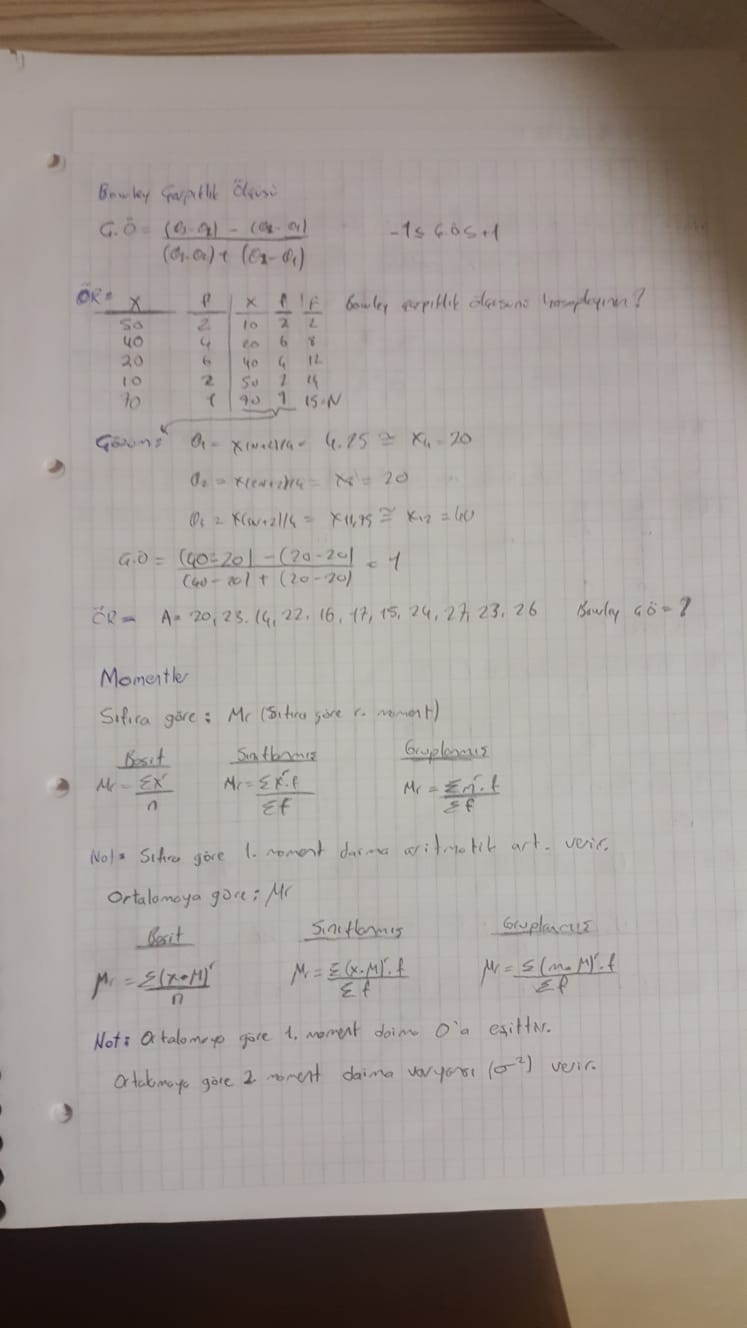 Bowley Çarpıklık Ölçüsü
Ç.Ö = (Q₃-Q₂) - (Q₂-Q₁) / (Q₃-Q₂) + (Q₂-Q₁) -1 ≤ ÇÖ ≤ +1
ÖR= X f X f F Bowley çarpıklık ölçüsünü hesaplayınız?
50 2 10 2 2
40 4 20 6 8
20 6 40 4 12
10 2 50 2 14
70 1 70 1 15=N
Çözüm: Q₁ = X(N+2)/4 = 4.25 ≅ X₄ = 20
Q₂ = X(2N+2)/4 = X₈ = 20
= X₁₁,₇₅ ≅ X₁₂ = 40
Ç.Ö = (40-20) - (20-20) / (40-20) + (20-20) = 1
ÖR= A= 20, 23, 14, 22, 16, 17, 15, 24, 27, 23, 26 Bowley ÇÖ = ?
Momentler
Sıfıra göre: Mr (Sıfıra göre r. moment)
Basit Sınıflanmış Gruplanmış
Mr = Σxʳ / n Mr = Σxʳ.f / Σf Mr = Σmʳ.f / Σf
Not= Sıfıra göre 1. moment daima aritmetik ort. verir.
Ortalamaya göre: μr
Basit Sınıflanmış Gruplanmış
μr = Σ(x-μ)ʳ / n μr = Σ(x-μ)ʳ.f / Σf μr = Σ(m-μ)ʳ.f / Σf
Not: Ortalamaya göre 1. moment daima 0'a eşittir.
Ortalamaya göre 2. moment daima varyansı (σ²) verir.